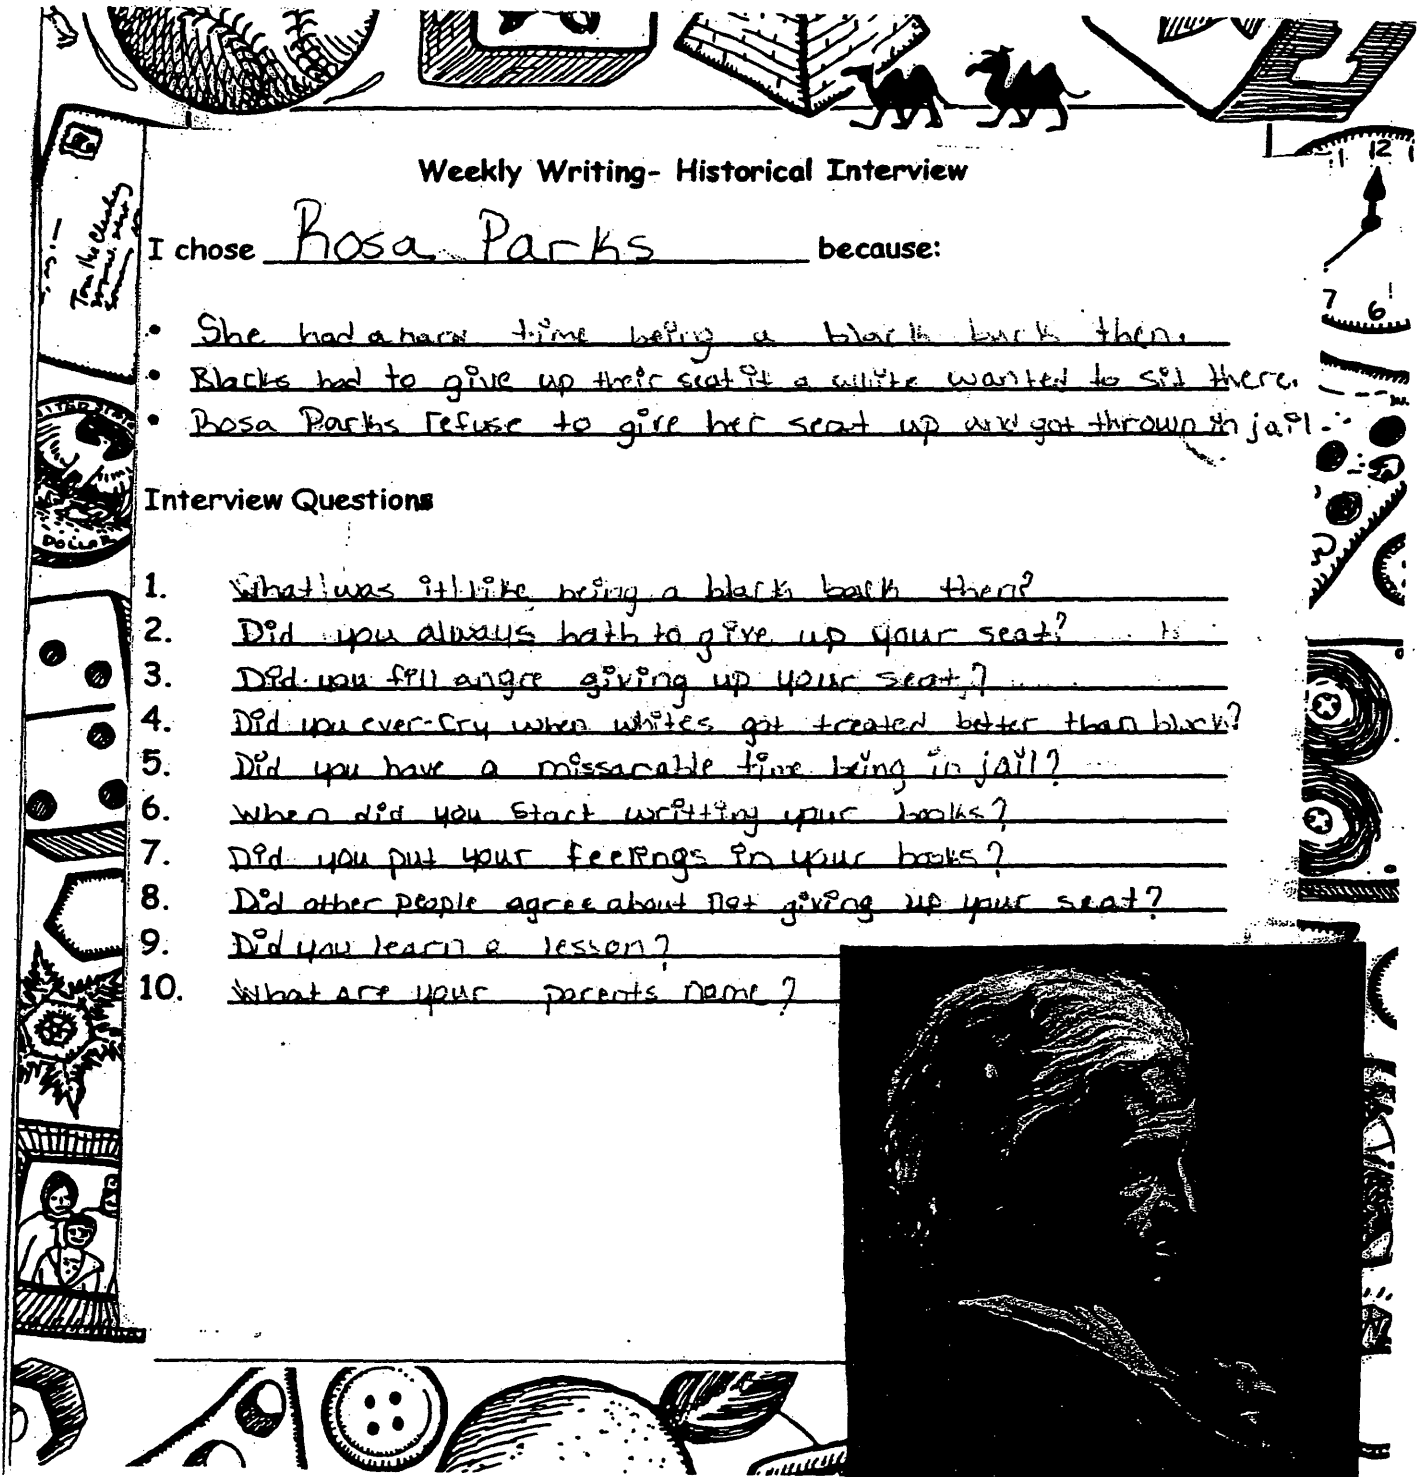 12
Weekly Writing- Historical Interview
I chose Rosa Parks because:
7 6
• She had a hard time being a black back then.
• Blacks had to give up their seat if a white wanted to sit there.
• Rosa Parks refuse to give her seat up and got thrown in jail.
Interview Questions
DOLLAR
1. What was it like being a black back then?
2. Did you always hath to give up your seat?
3. Did you fill angre giving up your seat?
4. Did you ever cry when whites got treated better than black?
5. Did you have a missarable time being in jail?
6. When did you start writting your books?
7. Did you put your feelings in your books?
8. Did other people agree about not giving up your seat?
9. Did you learn a lesson?
10. What are your parents name?